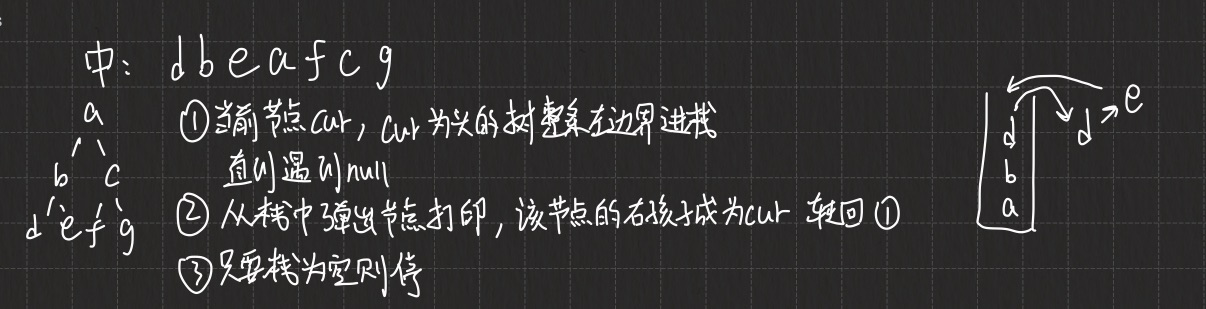 中: d b e a f c g
a
b c
d e f g
①当前节点cur, cur为头的树整条左边界进栈
直到遇到null
② 从栈中弹出节点打印, 该节点的右孩子成为cur 转回①
③只要栈为空则停
d
b
a
d
e